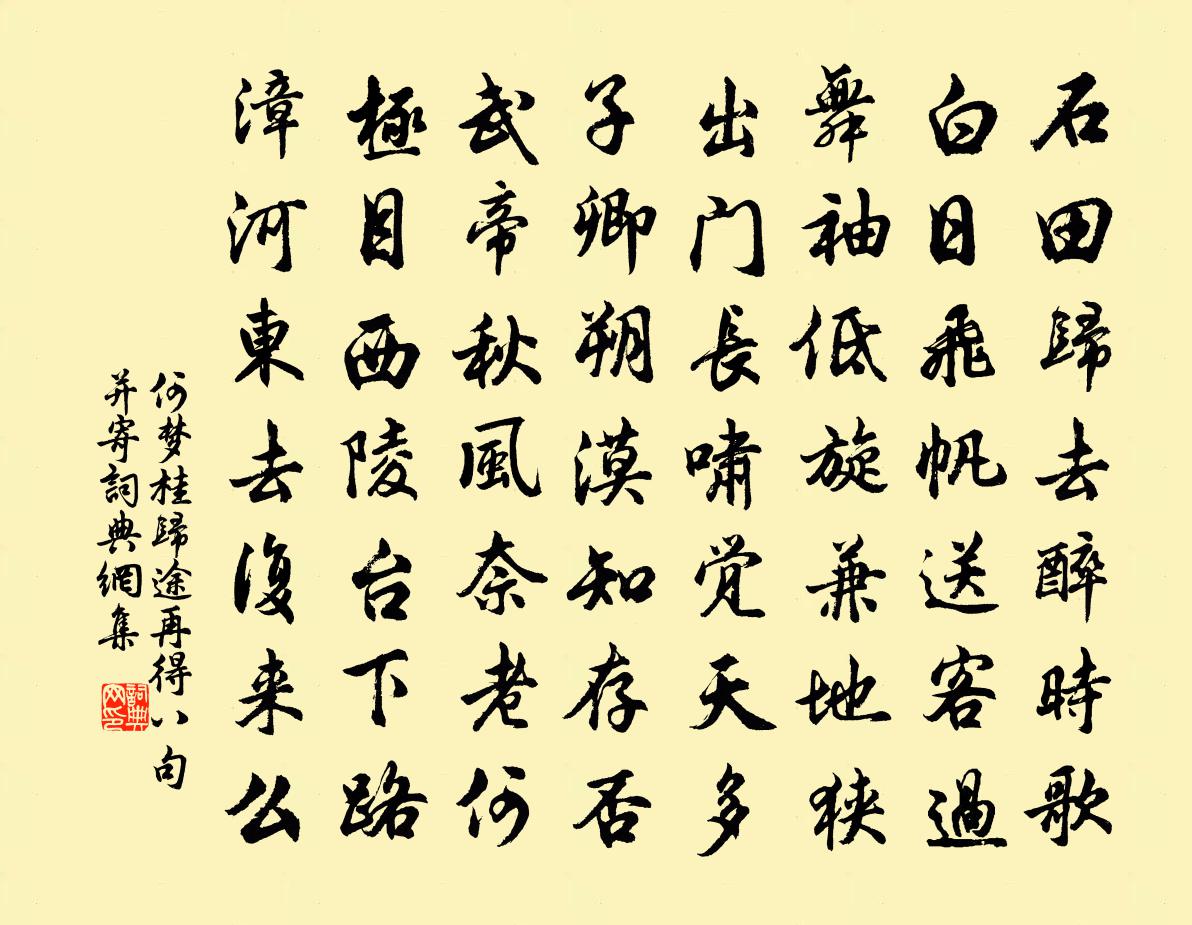 石田歸去醉時歌
白日飛帆送客過
舞袖低旋兼地狹
出门長嘯觉天多
子卿朔漠知存否
武帝秋風奈老何
極目西陵台下路
漳河東去復来么
何梦桂歸途再得八句
并寄詞典網集
詞典
网印